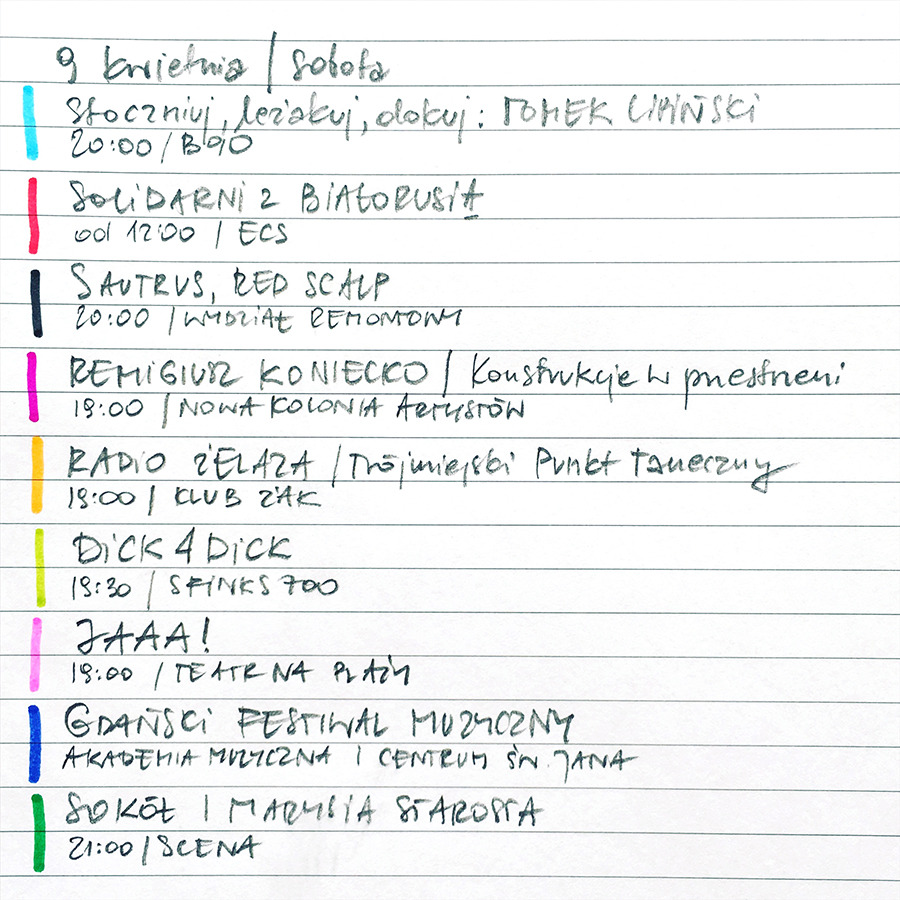 9 kwietnia / sobota
Stoczniuj, leżakuj, dokuj: TOMEK LIPIŃSKI
20:00 / B90
SOLIDARNI Z BIAŁORUSIĄ
od 12:00 / ECS
SAUTRUS, RED SCALP
20:00 / WYDZIAŁ REMONTOWY
REMIGIUSZ KONIECKO / Konstrukcje w przestrzeni
19:00 / NOWA KOLONIA ARTYSTÓW
RADIO ŻELAZA / Trójmiejski Punkt Taneczny
19:00 / KLUB ŻAK
DICK 4 DICK
19:30 / SFINKS 700
JAAA!
19:00 / TEATR NA PLAŻY
GDAŃSKI FESTIWAL MUZYCZNY
AKADEMIA MUZYCZNA I CENTRUM ŚW. JANA
SOKÓŁ I MARYSIA STAROSTA
21:00 / SCENA